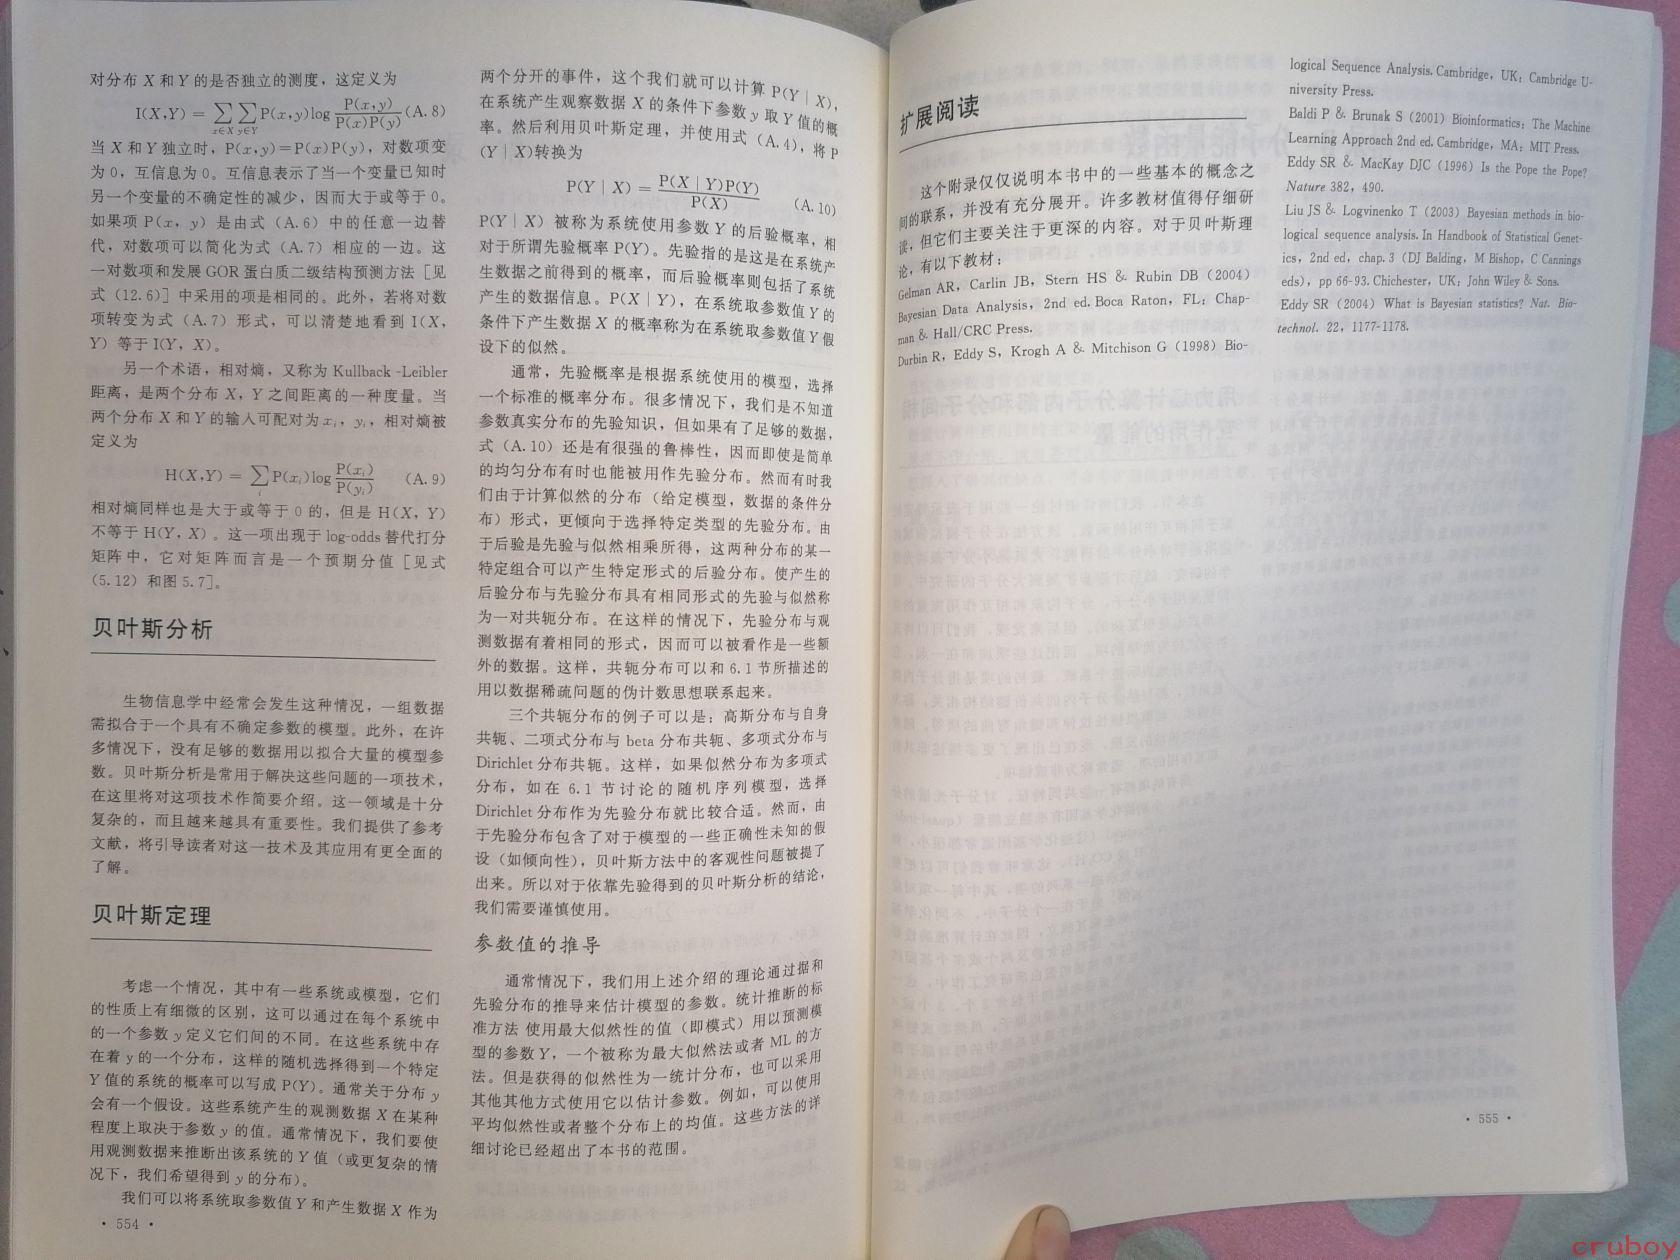 对分布 X 和 Y 的是否独立的测度，这定义为
I(X,Y) = ∑x∈X ∑y∈Y P(x,y)log P(x,y)/P(x)P(y) (A.8)
当 X 和 Y 独立时，P(x,y)=P(x)P(y)，对数项变
为 0，互信息为 0。互信息表示了当一个变量已知时
另一个变量的不确定性的减少，因而大于或等于 0。
如果项 P(x，y) 是由式（A.6）中的任意一边替
代，对数项可以简化为式（A.7）相应的一边。这
一对数项和发展 GOR 蛋白质二级结构预测方法［见
式（12.6)］中采用的项是相同的。此外，若将对数
项转变为式（A.7）形式，可以清楚地看到 I(X，
Y) 等于 I(Y，X)。
另一个术语，相对熵，又称为 Kullback -Leibler
距离，是两个分布 X，Y 之间距离的一种度量。当
两个分布 X 和 Y 的输入可配对为 xi，yi，相对熵被
定义为
H(X,Y) = ∑i P(xi)log P(xi)/P(yi) (A.9)
相对熵同样也是大于或等于 0 的，但是 H(X，Y)
不等于 H(Y，X)。这一项出现于 log-odds 替代打分
矩阵中，它对矩阵而言是一个预期分值［见式
（5.12）和图 5.7］。
贝叶斯分析
生物信息学中经常会发生这种情况，一组数据
需拟合于一个具有不确定参数的模型。此外，在许
多情况下，没有足够的数据用以拟合大量的模型参
数。贝叶斯分析是常用于解决这些问题的一项技术，
在这里将对这项技术作简要介绍。这一领域是十分
复杂的，而且越来越具有重要性。我们提供了参考
文献，将引导读者对这一技术及其应用有更全面的
了解。
贝叶斯定理
考虑一个情况，其中有一些系统或模型，它们
的性质上有细微的区别，这可以通过在每个系统中
的一个参数 y 定义它们间的不同。在这些系统中存
在着 y 的一个分布，这样的随机选择得到一个特定
Y 值的系统的概率可以写成 P(Y)。通常关于分布 y
会有一个假设。这些系统产生的观测数据 X 在某种
程度上取决于参数 y 的值。通常情况下，我们要使
用观测数据来推断出该系统的 Y 值（或更复杂的情
况下，我们希望得到 y 的分布）。
我们可以将系统取参数值 Y 和产生数据 X 作为
· 554 ·
两个分开的事件，这个我们就可以计算 P(Y｜X)，
在系统产生观察数据 X 的条件下参数 y 取 Y 值的概
率。然后利用贝叶斯定理，并使用式（A.4），将 P
(Y｜X)转换为
P(Y｜X) = P(X｜Y)P(Y)/P(X) (A.10)
P(Y｜X) 被称为系统使用参数 Y 的后验概率，相
对于所谓先验概率 P(Y)。先验指的是这是在系统产
生数据之前得到的概率，而后验概率则包括了系统
产生的数据信息。P(X｜Y)，在系统取参数值 Y 的
条件下产生数据 X 的概率称为在系统取参数值 Y 假
设下的似然。
通常，先验概率是根据系统使用的模型，选择
一个标准的概率分布。很多情况下，我们是不知道
参数真实分布的先验知识，但如果有了足够的数据，
式（A.10）还是有很强的鲁棒性，因而即使是简单
的均匀分布有时也能被用作先验分布。然而有时我
们由于计算似然的分布（给定模型，数据的条件分
布）形式，更倾向于选择特定类型的先验分布。由
于后验是先验与似然相乘所得，这两种分布的某一
特定组合可以产生特定形式的后验分布。使产生的
后验分布与先验分布具有相同形式的先验与似然称
为一对共轭分布。在这样的情况下，先验分布与观
测数据有着相同的形式，因而可以被看作是一些额
外的数据。这样，共轭分布可以和 6.1 节所描述的
用以数据稀疏问题的伪计数思想联系起来。
三个共轭分布的例子可以是：高斯分布与自身
共轭、二项式分布与 beta 分布共轭、多项式分布与
Dirichlet 分布共轭。这样，如果似然分布为多项式
分布，如在 6.1 节讨论的随机序列模型，选择
Dirichlet 分布作为先验分布就比较合适。然而，由
于先验分布包含了对于模型的一些正确性未知的假
设（如倾向性），贝叶斯方法中的客观性问题被提了
出来。所以对于依靠先验得到的贝叶斯分析的结论，
我们需要谨慎使用。
参数值的推导
通常情况下，我们用上述介绍的理论通过据和
先验分布的推导来估计模型的参数。统计推断的标
准方法 使用最大似然性的值（即模式）用以预测模
型的参数 Y，一个被称为最大似然法或者 ML 的方
法。但是获得的似然性为一统计分布，也可以采用
其他其他方式使用它以估计参数。例如，可以使用
平均似然性或者整个分布上的均值。这些方法的详
细讨论已经超出了本书的范围。
扩展阅读
这个附录仅仅说明本书中的一些基本的概念之
间的联系，并没有充分展开。许多教材值得仔细研
读，但它们主要关注于更深的内容。对于贝叶斯理
论，有以下教材：
Gelman AR，Carlin JB，Stern HS & Rubin DB（2004）
Bayesian Data Analysis，2nd ed. Boca Raton，FL：Chap-
man & Hall/CRC Press.
Durbin R，Eddy S，Krogh A & Mitchison G（1998）Bio-
logical Sequence Analysis. Cambridge，UK：Cambridge U-
niversity Press.
Baldi P & Brunak S（2001）Bioinformatics：The Machine
Learning Approach 2nd ed. Cambridge，MA：MIT Press.
Eddy SR & MacKay DJC（1996）Is the Pope the Pope?
Nature 382，490.
Liu JS & Logvinenko T（2003）Bayesian methods in bio-
logical sequence analysis. In Handbook of Statistical Genet-
ics，2nd ed，chap. 3（DJ Balding，M Bishop，C Cannings
eds），pp 66-93. Chichester，UK：John Wiley & Sons.
Eddy SR（2004）What is Bayesian statistics? Nat. Bio-
technol. 22，1177-1178.
· 555 ·
cruboy